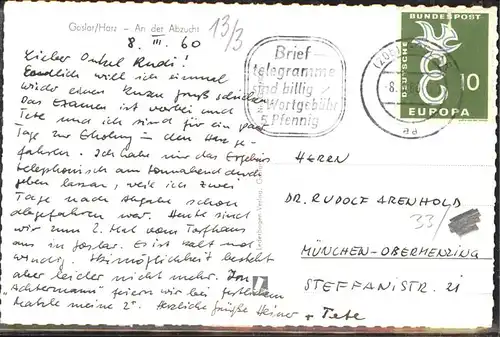 Goslar/Harz - An der Abzucht
13/3
8. III. 60
Lieber Onkel Rudi!
Endlich will ich einmal
wieder einen kurzen Gruß schicken.
Das Examen ist vorbei und
Tete und ich sind für ein paar
Tage zur Erholung in den Harz ge-
fahren. Ich habe mir das Ergebnis
telephonisch am Sonnabend durch-
geben lassen, weil ich zwei
Tage nach Abgabe schon
abgefahren war. Heute sind
wir zum 2. Mal vom Torfhaus
aus in Goslar. Es ist kalt und
windig. Skimöglichkeit besteht
aber leider nicht mehr. Im
"Achtermann" feiern wir bei festlichem
Mahle meine 2. Herzliche Grüße Heiner
+ Tete
Brief-
telegramme
sind billig
Wortgebühr
5 Pfennig
8.
aa
DEUTSCHE
BUNDESPOST
10
EUROPA
HERRN
DR. RUDOLF ARENHOLD
33/
MÜNCHEN-OBERMENZING
STEFFANISTR. 21